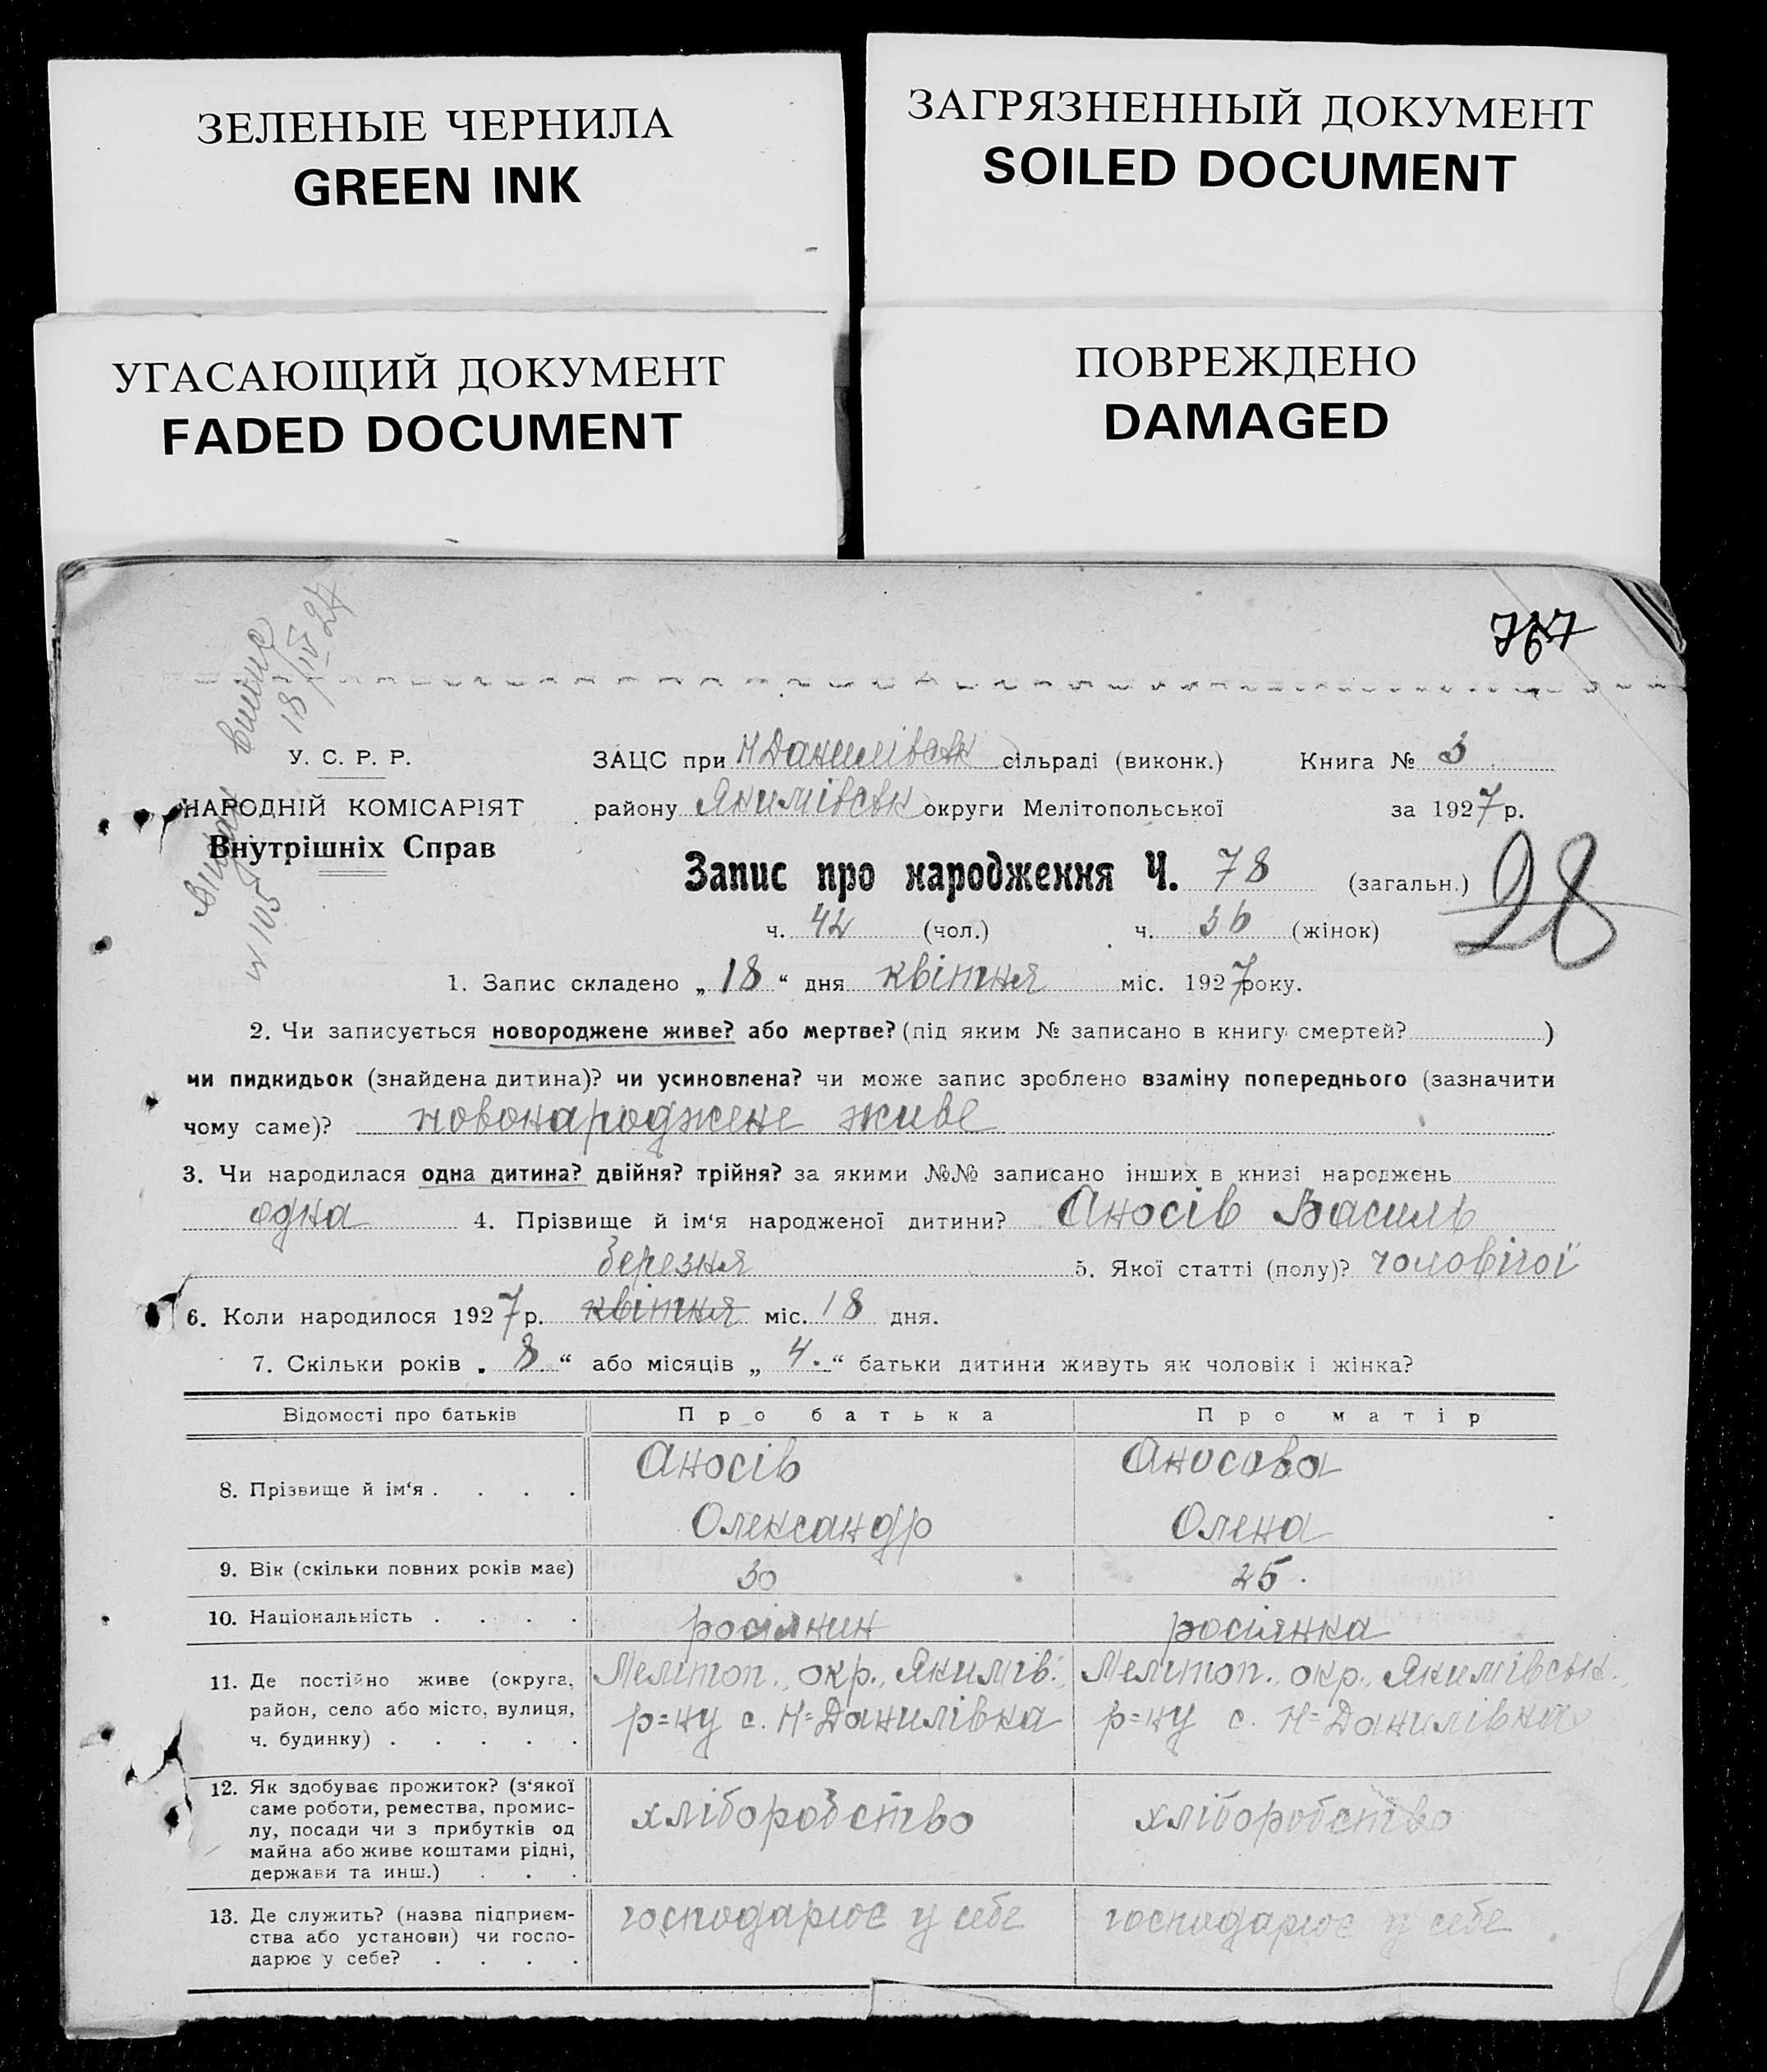 ЗЕЛЕНЫЕ ЧЕРНИЛА
GREEN INK
ЗАГРЯЗНЕННЫЙ ДОКУМЕНТ
SOILED DOCUMENT
УГАСАЮЩИЙ ДОКУМЕНТ
FADED DOCUMENT
ПОВРЕЖДЕНО
DAMAGED
767
18/IV 27
№ 105
У. С. Р. Р.
НАРОДНІЙ КОМІСАРІЯТ
Внутрішніх Справ
ЗАЦС при Н Данилівськ сільраді (виконк.) Книга № 3
району Якимівськ округи Мелітопольської за 1927 р.
Запис про народження Ч. 78 (загальн.) 28
ч. 42 (чол.) ч. 36 (жінок)
1. Запис складено „ 18 “ дня квітня міс. 1927 року.
2. Чи записується новороджене живе? або мертве? (під яким № записано в книгу смертей? )
чи пидкидьок (знайдена дитина)? чи усиновлена? чи може запис зроблено взаміну попереднього (зазначити
чому саме)? новонароджене живе
3. Чи народилася одна дитина? двійня? трійня? за якими №№ записано інших в книзі народжень
одна 4. Прізвище й ім‘я народженої дитини? Аносів Василь
березня 5. Якої статті (полу)? чоловічої
6. Коли народилося 1927 р. квітня міс. 18 дня.
7. Скільки років „ 8 “ або місяців „ 4. “ батьки дитини живуть як чоловік і жінка?
Відомості про батьків Про батька Про матір
8. Прізвище й ім‘я . . . . Аносів Аносова
Олександр Олена
9. Вік (скільки повних років має) 30 25.
10. Національність . . . . росіянин росіянка
11. Де постійно живе (округа, Меліттоп. окр., Якимів. Меліттоп. окр., Якимівськ.
район, село або місто, вулиця, р=ну с. Н=Данилівка р=ну с. Н=Данилівка
ч. будинку) . . . . .
12. Як здобуває прожиток? (з‘якої
саме роботи, ремества, промис-
лу, посади чи з прибутків од хліборобство хліборобство
майна або живе коштами рідні,
держави та инш.) . . .
13. Де служить? (назва підприєм- господарює у себе господарює у себе
ства або установи) чи госпо-
дарює у себе? . . . .